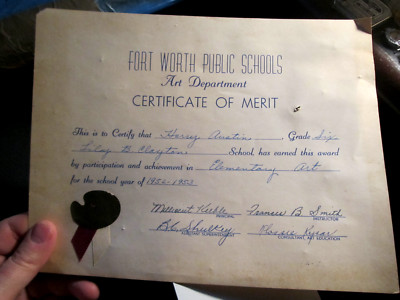 FORT WORTH PUBLIC SCHOOLS
Art Department
CERTIFICATE OF MERIT
This is to Certify that Harry Austin, Grade Six
Lily B. Clayton School has earned this award
by participation and achievement in Elementary Art
for the school year of 1952-1953
Millicent Keeble Francis B Smith
PRINCIPAL INSTRUCTOR
CONSULTANT, ART EDUCATION